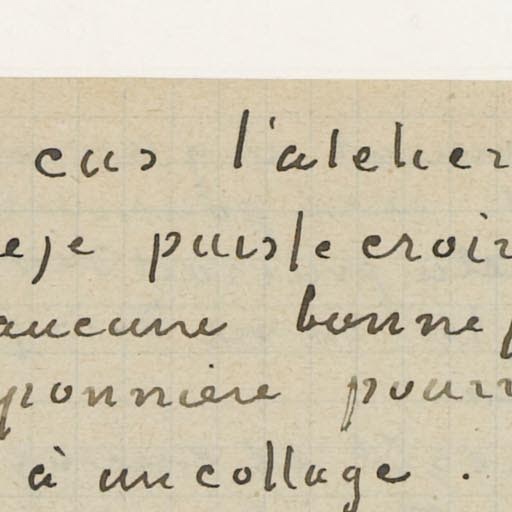 cas l'atelier
eje puis le croir
aucune bonne p
ponnière pourr
à un collage.